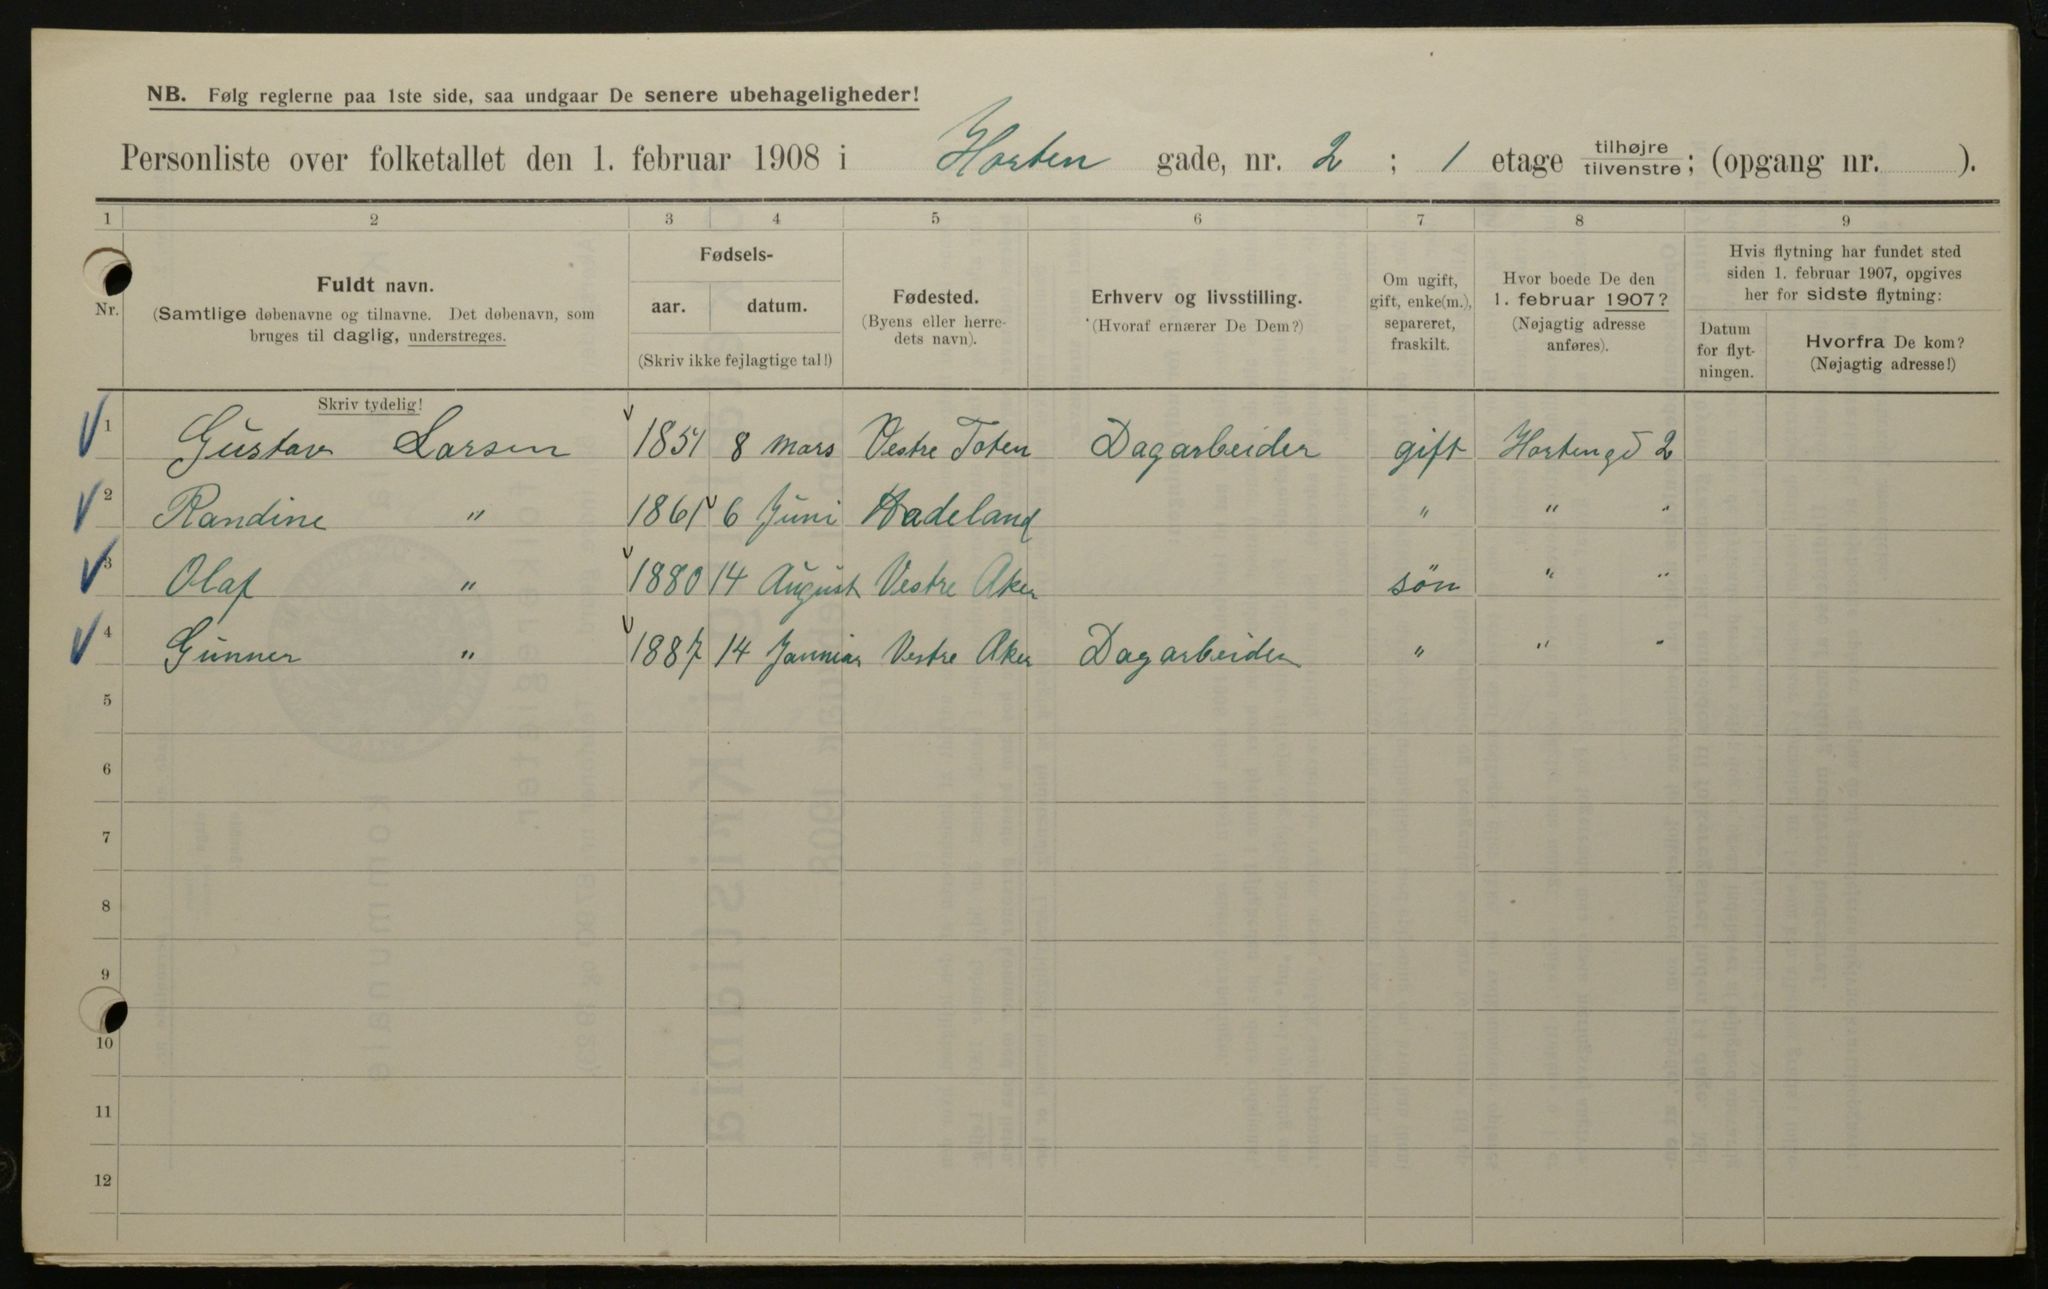 NB. Følg reglerne paa 1ste side, saa undgaar De senere ubehageligheder!
Personliste over folketallet den 1. februar 1908 i Horten gade, nr. 2 ; 1 etage tilhøjre/tilvenstre; (opgang nr. ).
1 2 3 4 5 6 7 8 9
Nr.
Fuldt navn.
(Samtlige døbenavne og tilnavne. Det døbenavn, som
bruges til daglig, understreges.
Fødsels-
aar. datum.
(Skriv ikke fejlagtige tal!)
Fødested.
(Byens eller herre-
dets navn).
Erhverv og livsstilling.
(Hvoraf ernærer De Dem?)
Om ugift,
gift, enke(m.),
separeret,
fraskilt.
Hvor boede De den
1. februar 1907?
(Nøjagtig adresse
anføres).
Hvis flytning har fundet sted
siden 1. februar 1907, opgives
her for sidste flytning:
Datum
for flyt-
ningen.
Hvorfra De kom?
(Nøjagtig adresse!)
Skriv tydelig!
1 Gustav Larsen 1851 8 mars Vestre Toten Dagarbeider gift Hortengd 2
2 Randine " 1861 6 Juni Hadeland " " "
3 Olaf " 1880 14 August Vestre Aker søn " "
4 Gunner " 1887 14 Januar Vestre Aker Dagarbeider " " "
5
6
7
8
9
10
11
12